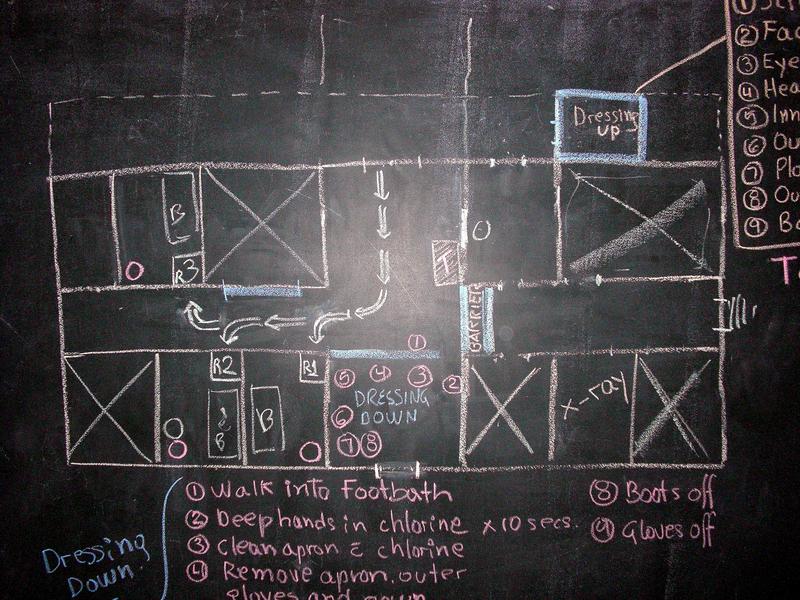 ① Str
② Fac
③ Eye
④ Hea
⑤ Inn
⑥ Ou
⑦ Pla
⑧ Ou
⑨ Bo
Dressing
up
B
R3
T
BARRIER
R2
R1
B
B
x-ray
①
⑤ ④ ③ ②
DRESSING
DOWN
⑥
⑦ ⑧
Dressing
Down
① Walk into Footbath
② Deep hands in chlorine x10 secs.
③ Clean apron c chlorine
④ Remove apron, outer
gloves and gown
⑧ Boots off
⑨ Gloves off
T